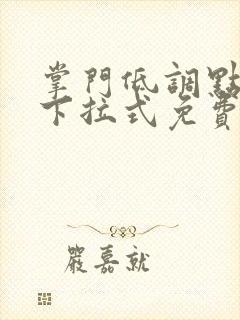 掌門低調點
下拉式免費
嚴嘉就